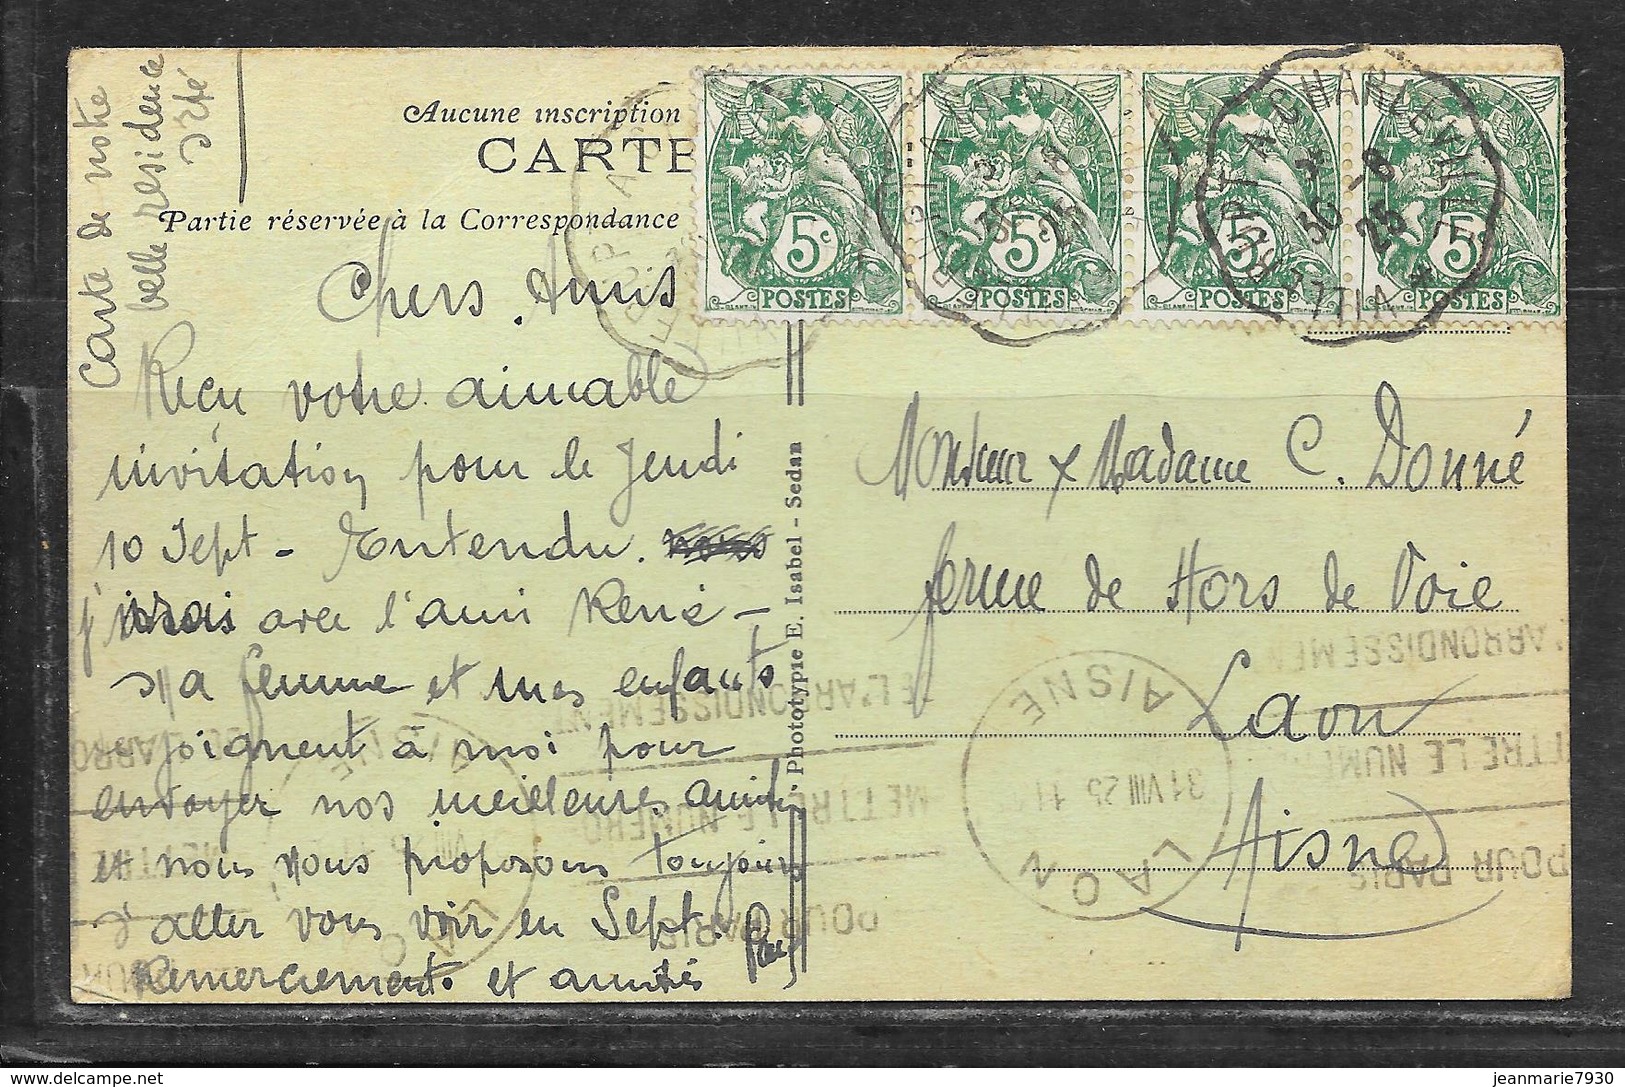 Carte de notre
belle residence
Aucune inscription
CARTE
Partie réservée à la Correspondance
Chers Amis
Reçu votre aimable
invitation pour le Jeudi
10 Sept - Entendu.
j'irai avec l'ami René -
Ma femme et mes enfants
se joignent à moi pour
envoyer nos meilleures amitiés
et nous vous proposons toujours
d'aller vous voir en Sept.
Remerciements et amitiés
Paul
Phototypie E. Isabel - Sedan
5c
POSTES
5c
POSTES
5c
POSTES
5c
POSTES
A CHARLEVILLE
30 -8
25
Monsieur & Madame C. Donné
ferme de Hors de Voie
Laon
Aisne
LAON
31 VIII 25 11
AISNE
POUR PARIS
METTRE LE NUMERO
DE L'ARRONDISSEMENT
jeanmarie7930